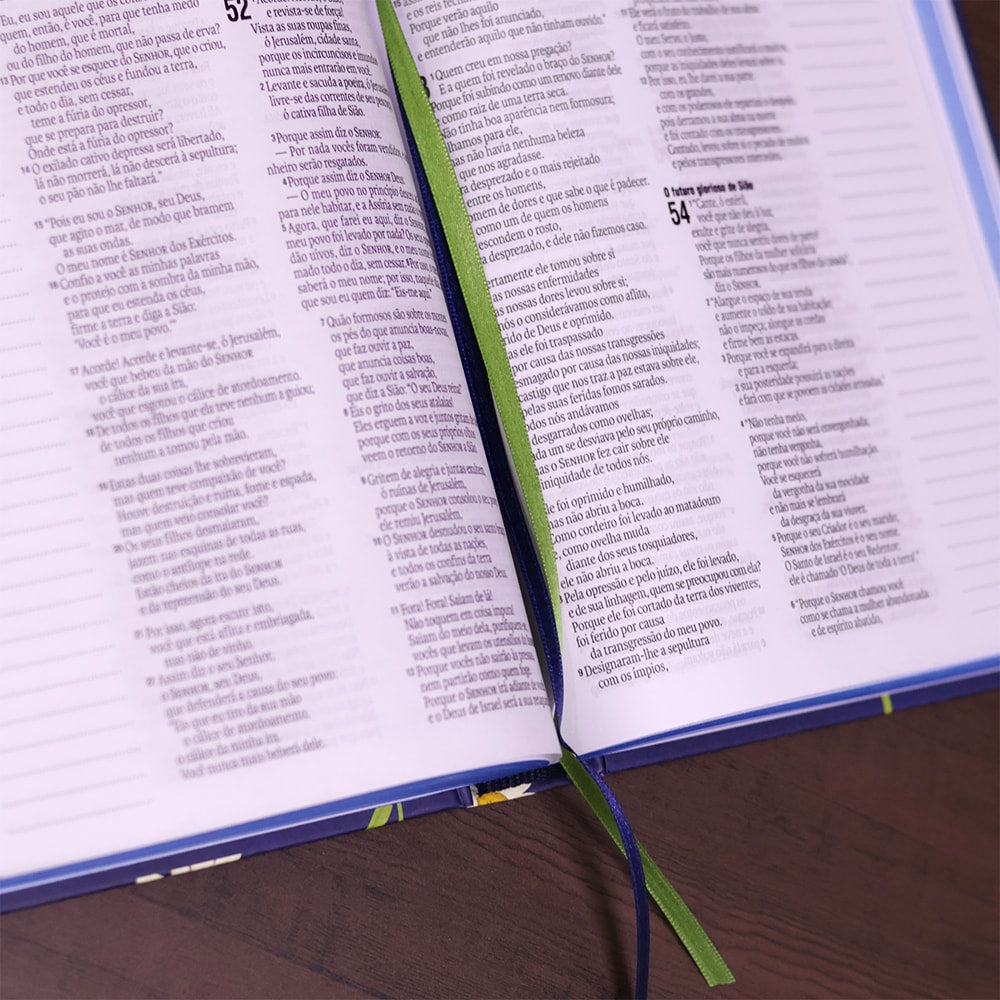 Eu, eu sou aquele que os
quem, então, é você, para que tenha medo
do homem, que é mortal,
ou do filho do homem, que não passa de erva?
13 Por que você se esquece do SENHOR, que o criou,
que estendeu os céus e fundou a terra,
e todo o dia, sem cessar,
teme a fúria do opressor,
que se prepara para destruir?
Onde está a fúria do opressor?
14 O exilado cativo depressa será libertado,
lá não morrerá, lá não descerá à sepultura;
o seu pão não lhe faltará.”
15 “Pois eu sou o SENHOR, seu Deus,
que agito o mar, de modo que bramem
as suas ondas.
O meu nome é SENHOR dos Exércitos.
16 Confio a você as minhas palavras
e o protejo com a sombra da minha mão,
para que eu estenda os céus,
firme a terra e diga a Sião:
‘Você é o meu povo.’”
17 Acorde! Acorde e levante-se, ó Jerusalém,
você que bebeu da mão do SENHOR
o cálice da sua ira,
você que esgotou o cálice de atordoamento.
18 De todos os filhos que ela teve nenhum a guiou;
de todos os filhos que criou
nenhum a tomou pela mão.
19 Estas duas coisas lhe sobrevieram,
mas quem teve compaixão de você?
Houve destruição e ruína, fome e espada,
mas quem veio consolar você?
20 Os seus filhos desmaiaram,
jazem nas esquinas de todas as ruas,
como o antílope na rede.
Estão cheios da ira do SENHOR
e da repreensão do seu Deus.
21 Por isso, agora escute isto,
você que está aflita e embriagada,
mas não de vinho.
22 Assim diz o seu Senhor,
o SENHOR, seu Deus,
que defenderá a causa do seu povo:
“Eis que eu tiro da sua mão
o cálice de atordoamento,
o cálice da minha ira.
Você nunca mais beberá dele.
52
e revista-se de força!
Vista as suas roupas finas,
ó Jerusalém, cidade santa,
porque os incircuncisos e imundos
nunca mais entrarão em você.
2 Levante e sacuda a poeira, ó Jerusalém
livre-se das correntes de seu pescoço
ó cativa filha de Sião.
3 Porque assim diz o SENHOR:
— Por nada vocês foram vendidos,
nheiro serão resgatados.
4 Porque assim diz o SENHOR Deus:
— O meu povo no princípio desceu
para nele habitar, e a Assíria sem razão
5 Agora, que farei eu aqui, diz o SENHOR
meu povo foi levado por nada? Os seus
dão uivos, diz o SENHOR, e o meu nome
mado todo o dia, sem cessar. 6 Por isso,
saberá o meu nome; por isso, naquele
que sou eu quem diz: “Eis-me aqui.”
7 Quão formosos são sobre os montes
os pés do que anuncia boas-novas,
que faz ouvir a paz,
que anuncia coisas boas,
que faz ouvir a salvação,
que diz a Sião: “O seu Deus reina!”
8 Eis o grito dos seus atalaias!
Eles erguem a voz e juntos gritam de
porque com os seus próprios olhos
veem o retorno do SENHOR a Sião.
9 Gritem de alegria e juntas exultem,
ó ruínas de Jerusalém,
porque o SENHOR consolou o seu povo
ele remiu Jerusalém.
10 O SENHOR desnudou o seu santo
à vista de todas as nações,
e todos os confins da terra
verão a salvação do nosso Deus.
11 Fora! Fora! Saiam de lá!
Não toquem em coisa impura!
Saiam do meio dela, purifiquem-se,
vocês que levam os utensílios do
12 Porque vocês não sairão às pressas,
nem partirão como quem foge.
Porque o SENHOR irá adiante de
e o Deus de Israel será a sua retaguarda
e os reis
Porque verão aquilo
que não lhes foi anunciado,
e entenderão aquilo que não tinham ouvido.”
1 Quem creu em nossa pregação?
E a quem foi revelado o braço do SENHOR?
Porque foi subindo como um renovo diante dele
como raiz de uma terra seca.
não tinha boa aparência nem formosura;
lhamos para ele,
as não havia nenhuma beleza
que nos agradasse.
a desprezado e o mais rejeitado
entre os homens,
omem de dores e que sabe o que é padecer.
como um de quem os homens
escondem o rosto,
a desprezado, e dele não fizemos caso.
ertamente ele tomou sobre si
as nossas enfermidades
as nossas dores levou sobre si;
nós o considerávamos como aflito,
rido de Deus e oprimido.
as ele foi traspassado
por causa das nossas transgressões
esmagado por causa das nossas iniquidades;
castigo que nos traz a paz estava sobre ele,
pelas suas feridas fomos sarados.
odos nós andávamos
desgarrados como ovelhas;
da um se desviava pelo seu próprio caminho,
as o SENHOR fez cair sobre ele
iniquidade de todos nós.
le foi oprimido e humilhado,
mas não abriu a boca.
Como cordeiro foi levado ao matadouro
e, como ovelha muda
diante dos seus tosquiadores,
ele não abriu a boca.
8 Pela opressão e pelo juízo, ele foi levado,
e de sua linhagem, quem se preocupou com ela?
Porque ele foi cortado da terra dos viventes;
foi ferido por causa
da transgressão do meu povo.
9 Designaram-lhe a sepultura
com os ímpios,
Ele verá o fruto do trabalho de sua alma
e ficará satisfeito.
O meu Servo, o Justo,
com o seu conhecimento justificará a muitos,
porque as iniquidades deles levará sobre si.
12 Por isso, eu lhe darei a sua parte
com os grandes,
e com os poderosos ele repartirá o despojo,
pois derramou a sua alma na morte
e foi contado com os transgressores.
Contudo, levou sobre si o pecado de muitos
e pelos transgressores intercedeu.
O futuro glorioso de Sião
54 1 “Cante, ó estéril,
você que não deu à luz;
exulte e grite de alegria,
você que nunca sentiu dores de parto!
Porque os filhos da mulher solitária
são mais numerosos do que os filhos da casada”,
diz o SENHOR.
2 “Alargue o espaço de sua tenda
e aumente o toldo de sua habitação;
não o impeça; alongue as cordas
e firme bem as estacas.
3 Porque você se expandirá para a direita
e para a esquerda;
a sua posteridade possuirá as nações
e fará com que se povoem as cidades arrasadas.”
4 “Não tenha medo,
porque você não será envergonhada;
não tenha vergonha,
porque você não sofrerá humilhação.
Você se esquecerá
da vergonha da sua mocidade
e não mais se lembrará
da desgraça da sua viuvez.
5 Porque o seu Criador é o seu marido;
SENHOR dos Exércitos é o seu nome.
O Santo de Israel é o seu Redentor;
ele é chamado ‘O Deus de toda a terra’.”
6 “Porque o SENHOR chamou você
como se chama a mulher abandonada
e de espírito abatido,